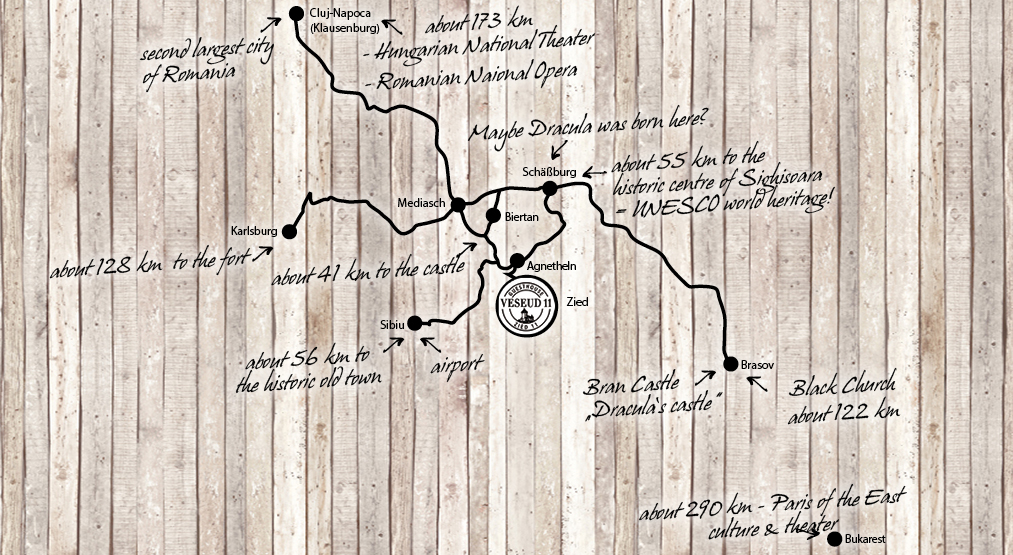 Cluj-Napoca
(Klausenburg)
about 173 km
- Hungarian National Theater
- Romanian Naional Opera
second largest city
of Romania
Maybe Dracula was born here?
Schäßburg
about 55 km to the
historic centre of Sighisoara
- UNESCO world heritage!
Mediasch
Biertan
Karlsburg
about 128 km to the fort
about 41 km to the castle
Agnetheln
GUESTHOUSE
VESEUD 11
ZIED 11
Zied
Sibiu
about 56 km to
the historic old town
airport
Brasov
Bran Castle
„Dracula's castle"
Black Church
about 122 km
about 290 km - Paris of the East
culture & theater
Bukarest